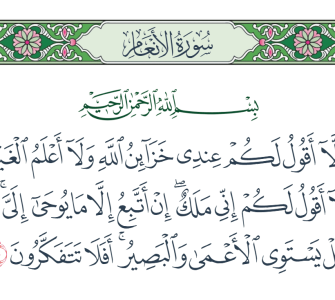 سُورَةُ الأَنْعَامِ
بِسْمِ اللَّهِ الرَّحْمَٰنِ الرَّحِيمِ
أَقُولُ لَكُمْ عِندِى خَزَآئِنُ ٱللَّهِ وَلَآ أَعْلَمُ
أَقُولُ لَكُمْ إِنِّى مَلَكٌ ۖ إِنْ أَتَّبِعُ إِلَّا مَا يُوحَىٰٓ إِلَىَّ ۚ
يَسْتَوِى ٱلْأَعْمَىٰ وَٱلْبَصِيرُ ۚ أَفَلَا تَتَفَكَّرُونَ